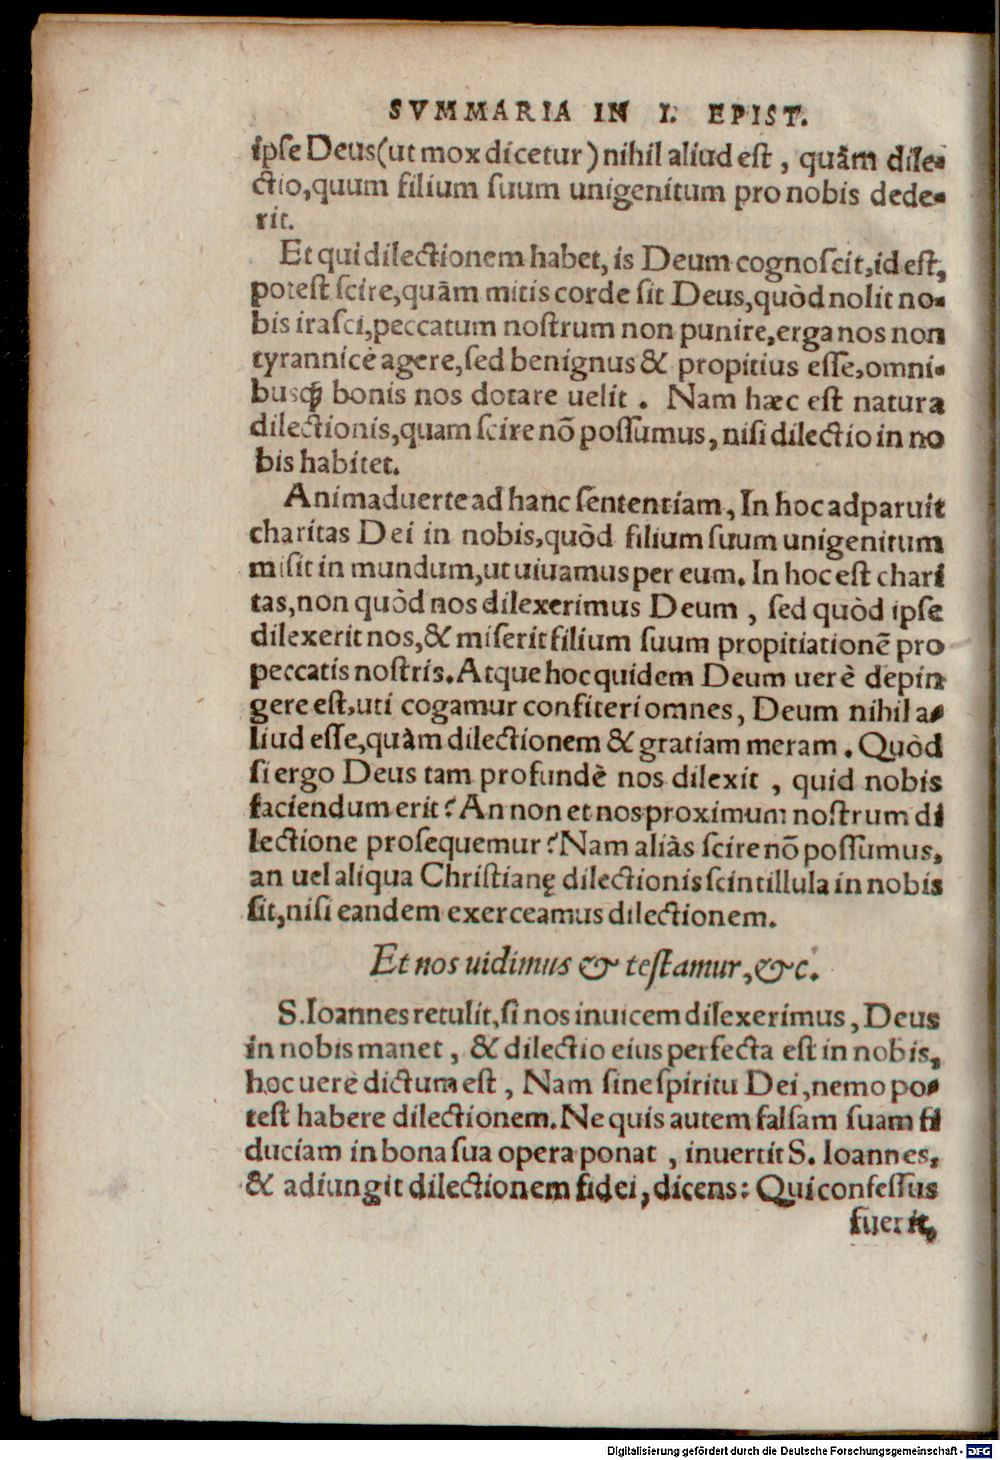 SVMMARIA IN I. EPIST.
ipſe Deus(ut mox dicetur) nihil aliud eſt, quâm dile-
ctio, quum filium ſuum unigenitum pro nobis dede-
rit.
Et qui dilectionem habet, is Deum cognoſcit, id eſt,
poteſt ſcire, quàm mitis corde ſit Deus, quòd nolit no-
bis iraſci, peccatum noſtrum non punire, erga nos non
tyrannicè agere, ſed benignus & propitius eſſe, omni-
busq́ꝫ bonis nos dotare uelit. Nam hæc eſt natura
dilectionis, quam ſcire nõ poſſumus, niſi dilectio in no
bis habitet.
Animaduerte ad hanc ſententiam, In hoc adparuit
charitas Dei in nobis, quòd filium ſuum unigenitum
miſit in mundum, ut uiuamus per eum. In hoc eſt chari
tas, non quòd nos dilexerimus Deum, ſed quòd ipſe
dilexerit nos, & miſerit filium ſuum propitiationẽ pro
peccatis noſtris. Atque hoc quidem Deum uerè depin
gere eſt, uti cogamur confiteri omnes, Deum nihil a-
liud eſſe, quàm dilectionem & gratiam meram. Quòd
ſi ergo Deus tam profundè nos dilexit, quid nobis
faciendum erit? An non et nos proximum noſtrum di
lectione proſequemur? Nam aliàs ſcire nõ poſſumus,
an uel aliqua Chriſtianę dilectionis ſcintillula in nobis
ſit, niſi eandem exerceamus dilectionem.
Et nos uidimus & teſtamur, &c.
S. Ioannes retulit, ſi nos inuicem dilexerimus, Deus
in nobis manet, & dilectio eius perfecta eſt in nobis,
hoc uerè dictum eſt, Nam ſine ſpiritu Dei, nemo po-
teſt habere dilectionem. Ne quis autem falſam ſuam fi
duciam in bona ſua opera ponat, inuertit S. Ioannes,
& adiungit dilectionem fidei, dicens: Qui confeſſus
fuerit,
Digitalisierung gefördert durch die Deutsche Forschungsgemeinschaft - DFG